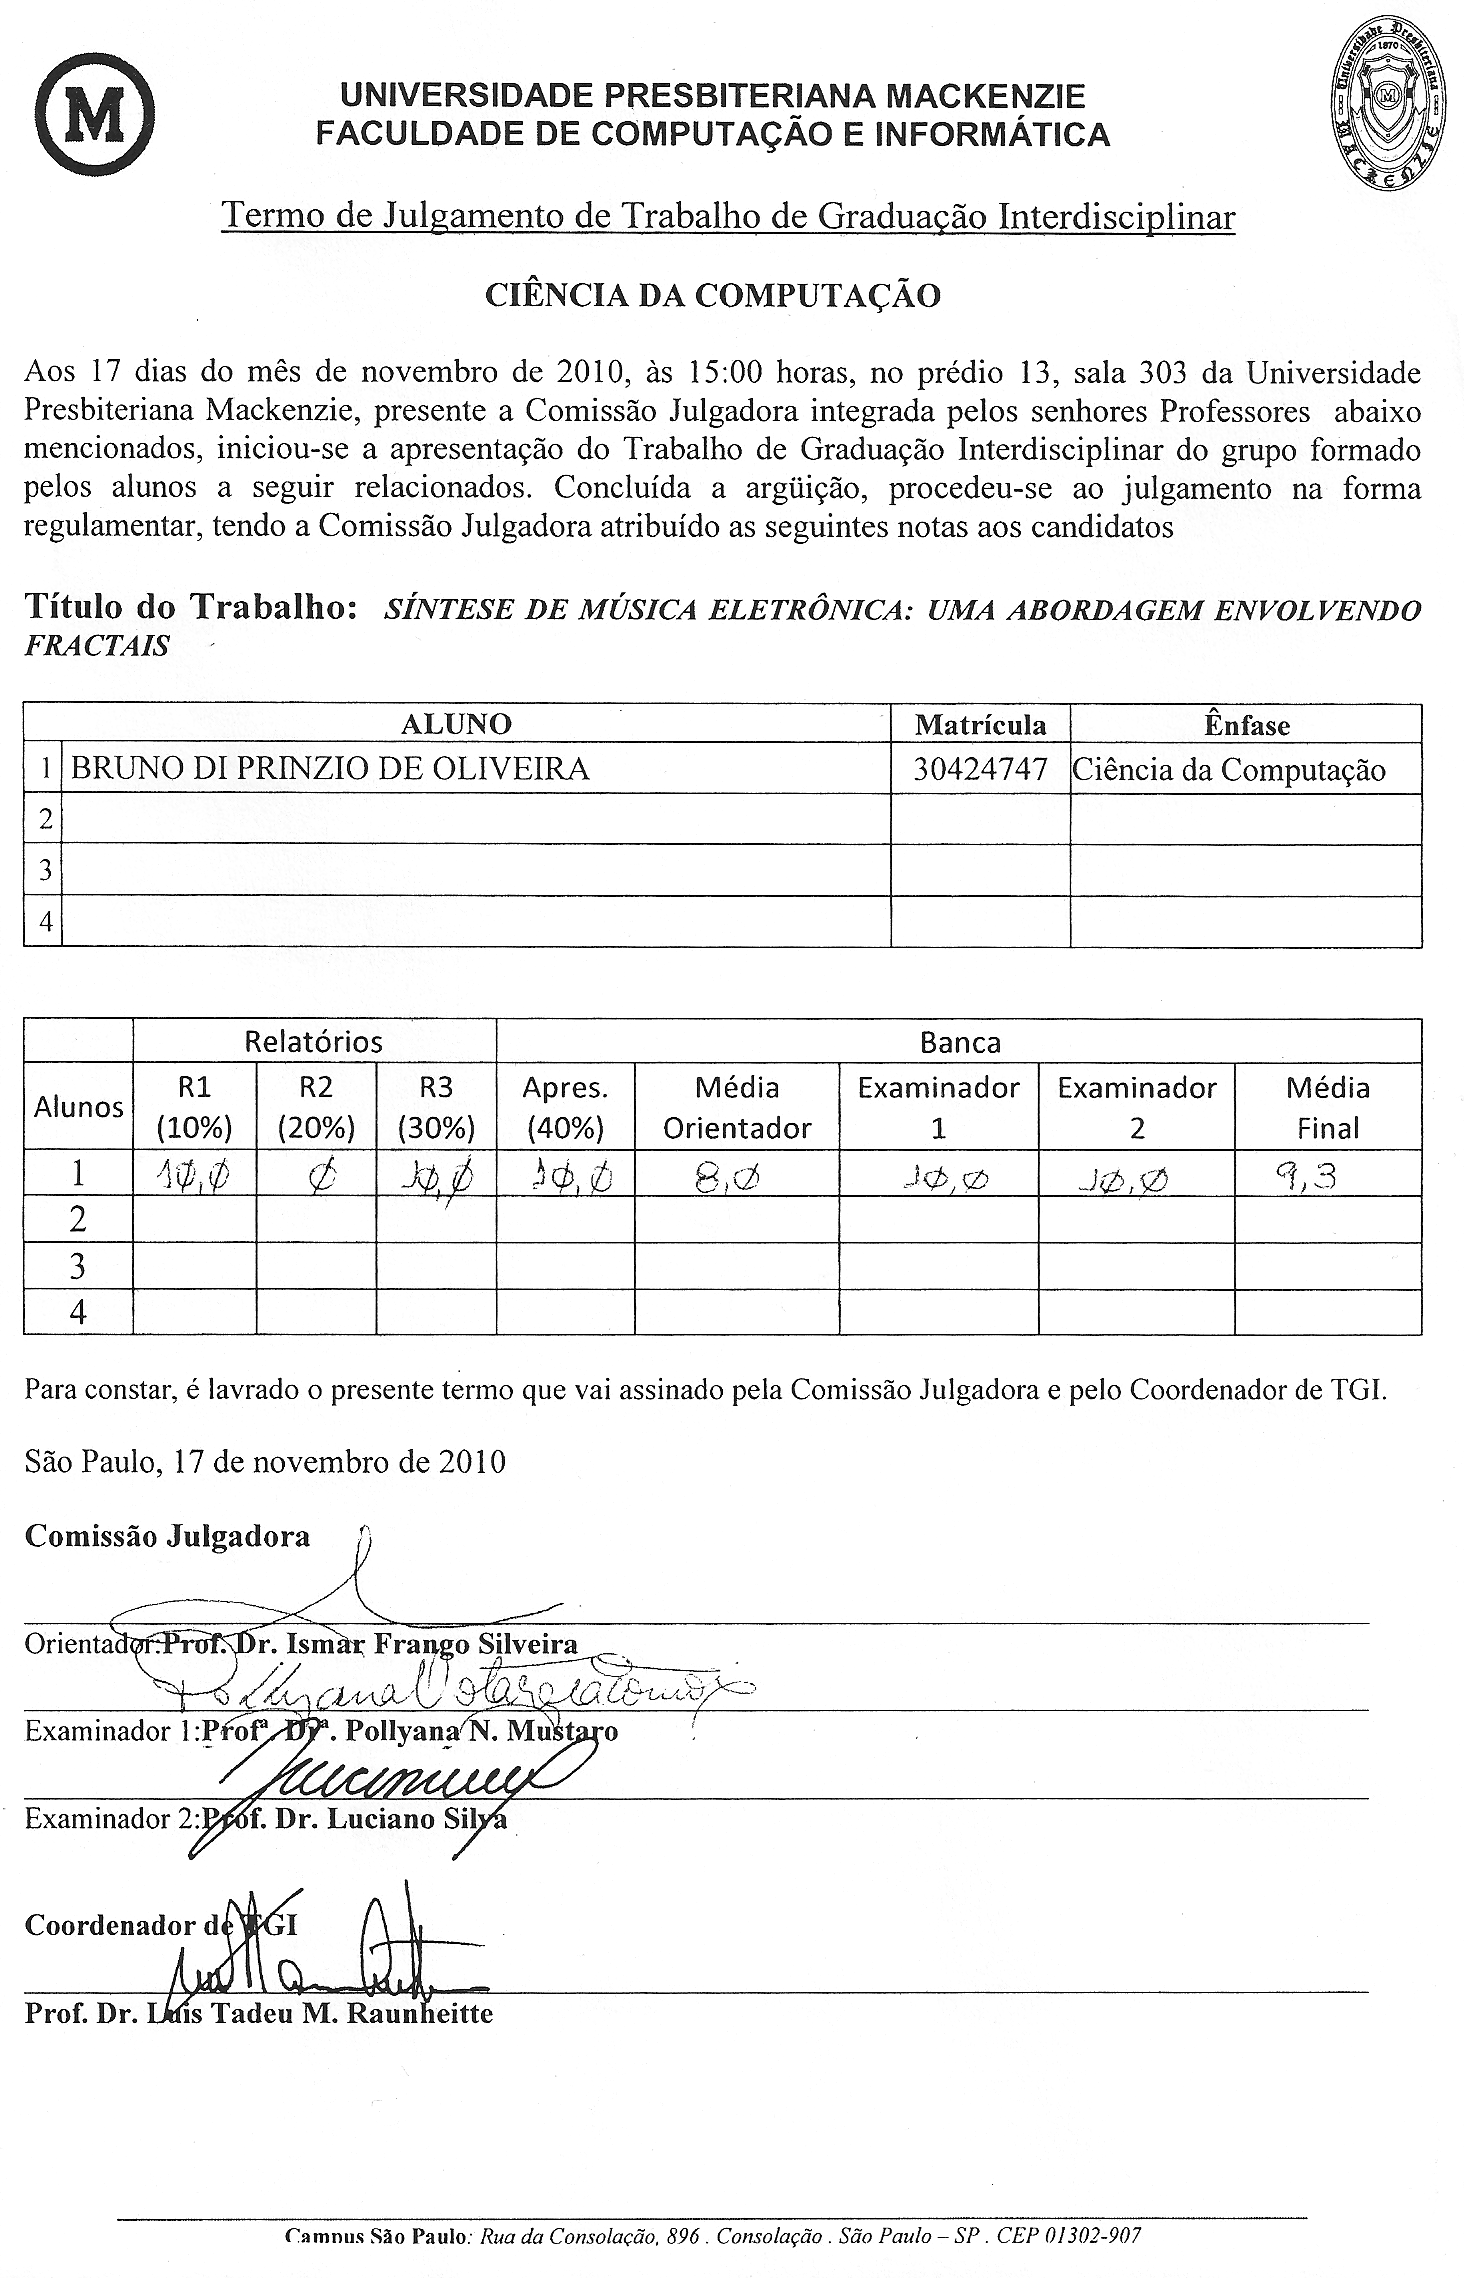 M
UNIVERSIDADE PRESBITERIANA MACKENZIE
FACULDADE DE COMPUTAÇÃO E INFORMÁTICA
Universidade Presbiteriana
1870
M
MACKENZIE
Termo de Julgamento de Trabalho de Graduação Interdisciplinar
CIÊNCIA DA COMPUTAÇÃO
Aos 17 dias do mês de novembro de 2010, às 15:00 horas, no prédio 13, sala 303 da Universidade
Presbiteriana Mackenzie, presente a Comissão Julgadora integrada pelos senhores Professores abaixo
mencionados, iniciou-se a apresentação do Trabalho de Graduação Interdisciplinar do grupo formado
pelos alunos a seguir relacionados. Concluída a argüição, procedeu-se ao julgamento na forma
regulamentar, tendo a Comissão Julgadora atribuído as seguintes notas aos candidatos
Título do Trabalho: SÍNTESE DE MÚSICA ELETRÔNICA: UMA ABORDAGEM ENVOLVENDO
FRACTAIS
ALUNO Matrícula Ênfase
1 BRUNO DI PRINZIO DE OLIVEIRA 30424747 Ciência da Computação
2
3
4
Relatórios Banca
Alunos R1 (10%) R2 (20%) R3 (30%) Apres. (40%) Média Orientador Examinador 1 Examinador 2 Média Final
1 10,0 0 10,0 10,0 8,0 10,0 10,0 9,3
2
3
4
Para constar, é lavrado o presente termo que vai assinado pela Comissão Julgadora e pelo Coordenador de TGI.
São Paulo, 17 de novembro de 2010
Comissão Julgadora
Orientador:Prof. Dr. Ismar Frango Silveira
Pollyana
Examinador 1:Profª. Drª. Pollyana N. Mustaro
Examinador 2:Prof. Dr. Luciano Silva
Coordenador de TGI
Prof. Dr. Luis Tadeu M. Raunheitte
Campus São Paulo: Rua da Consolação, 896 . Consolação . São Paulo – SP . CEP 01302-907